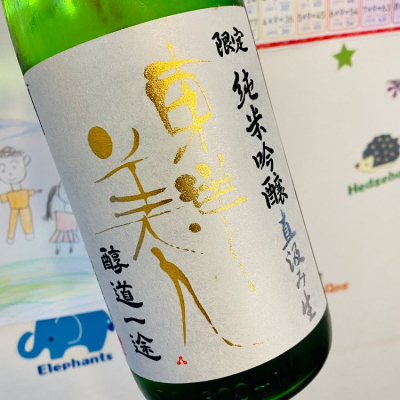 限定 純米吟醸 直汲み生
東洋美人
醇道一途
Elephants
Hedgeho